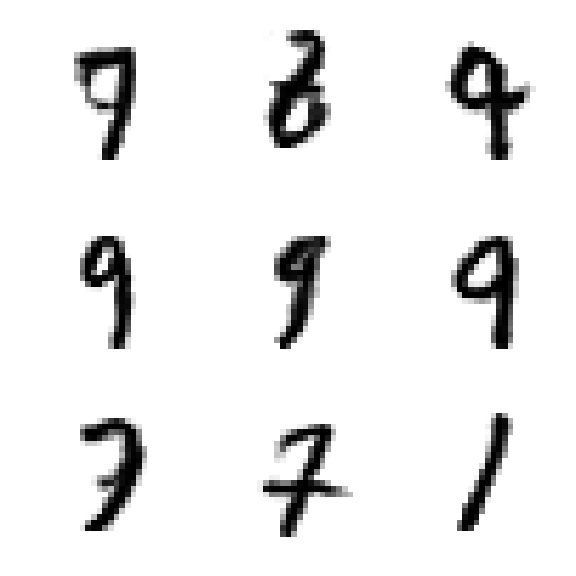 9 8 9
9 9 9
7 7 1